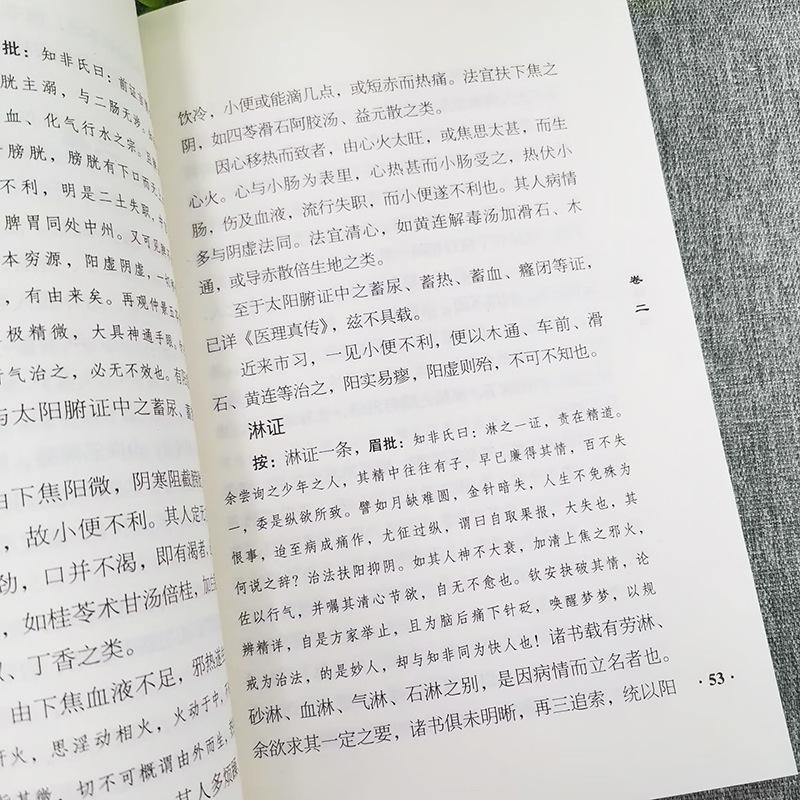 批：知非氏曰：前证
胱主弱，与二肠无涉
血、化气行水之宗。
膀胱，膀胱有下口而无上
不利，明是二土失职，
脾胃同处中州。又可见
本穷源，阳虚阴虚，一
，有由来矣。再观仲景
极精微，大具神通手眼，
气治之，必无不效也。有
与太阳腑证中之蓄尿、蓄
由下焦阳微，阴寒阻截
，故小便不利。其人定
劲，口并不渴，即有渴者，
，如桂苓术甘汤倍桂，加
、丁香之类。
由下焦血液不足，邪热
火，思淫动相火，火动于中，
其微，切不可概谓由外而生，
其人多烦
饮冷，小便或能滴几点，或短赤而热痛。法宜扶下焦之
阴，如四苓滑石阿胶汤、益元散之类。
因心移热而致者，由心火太旺，或焦思太甚，而生
心火。心与小肠为表里，心热甚而小肠受之，热伏小
肠，伤及血液，流行失职，而小便遂不利也。其人病情
多与阴虚法同。法宜清心，如黄连解毒汤加滑石、木
通，或导赤散倍生地之类。
至于太阳腑证中之蓄尿、蓄热、蓄血、癃闭等证，
已详《医理真传》，兹不具载。
近来市习，一见小便不利，便以木通、车前、滑
石、黄连等治之，阳实易瘳，阳虚则殆，不可不知也。
淋证
按：淋证一条，眉批：知非氏曰：淋之一证，责在精道。
余尝询之少年之人，其精中往往有子，早已廉得其情，百不失
一，委是纵欲所致。譬如月缺难圆，金针暗失，人生不免殊为
恨事，迨至病成痛作，尤征过纵，谓曰自取果报，大失也，其
何说之辞？治法扶阳抑阴。如其人神不大衰，加清上焦之邪火，
佐以行气，并嘱其清心节欲，自无不愈也。钦安抉破其情，论
辨精详，自是方家举止，且为脑后痛下针砭，唤醒梦梦，以规
戒为治法，的是妙人，却与知非同为快人也！诸书载有劳淋、
砂淋、血淋、气淋、石淋之别，是因病情而立名者也。
余欲求其一定之要，诸书俱未明晰，再三追索，统以阳
卷二
·53·